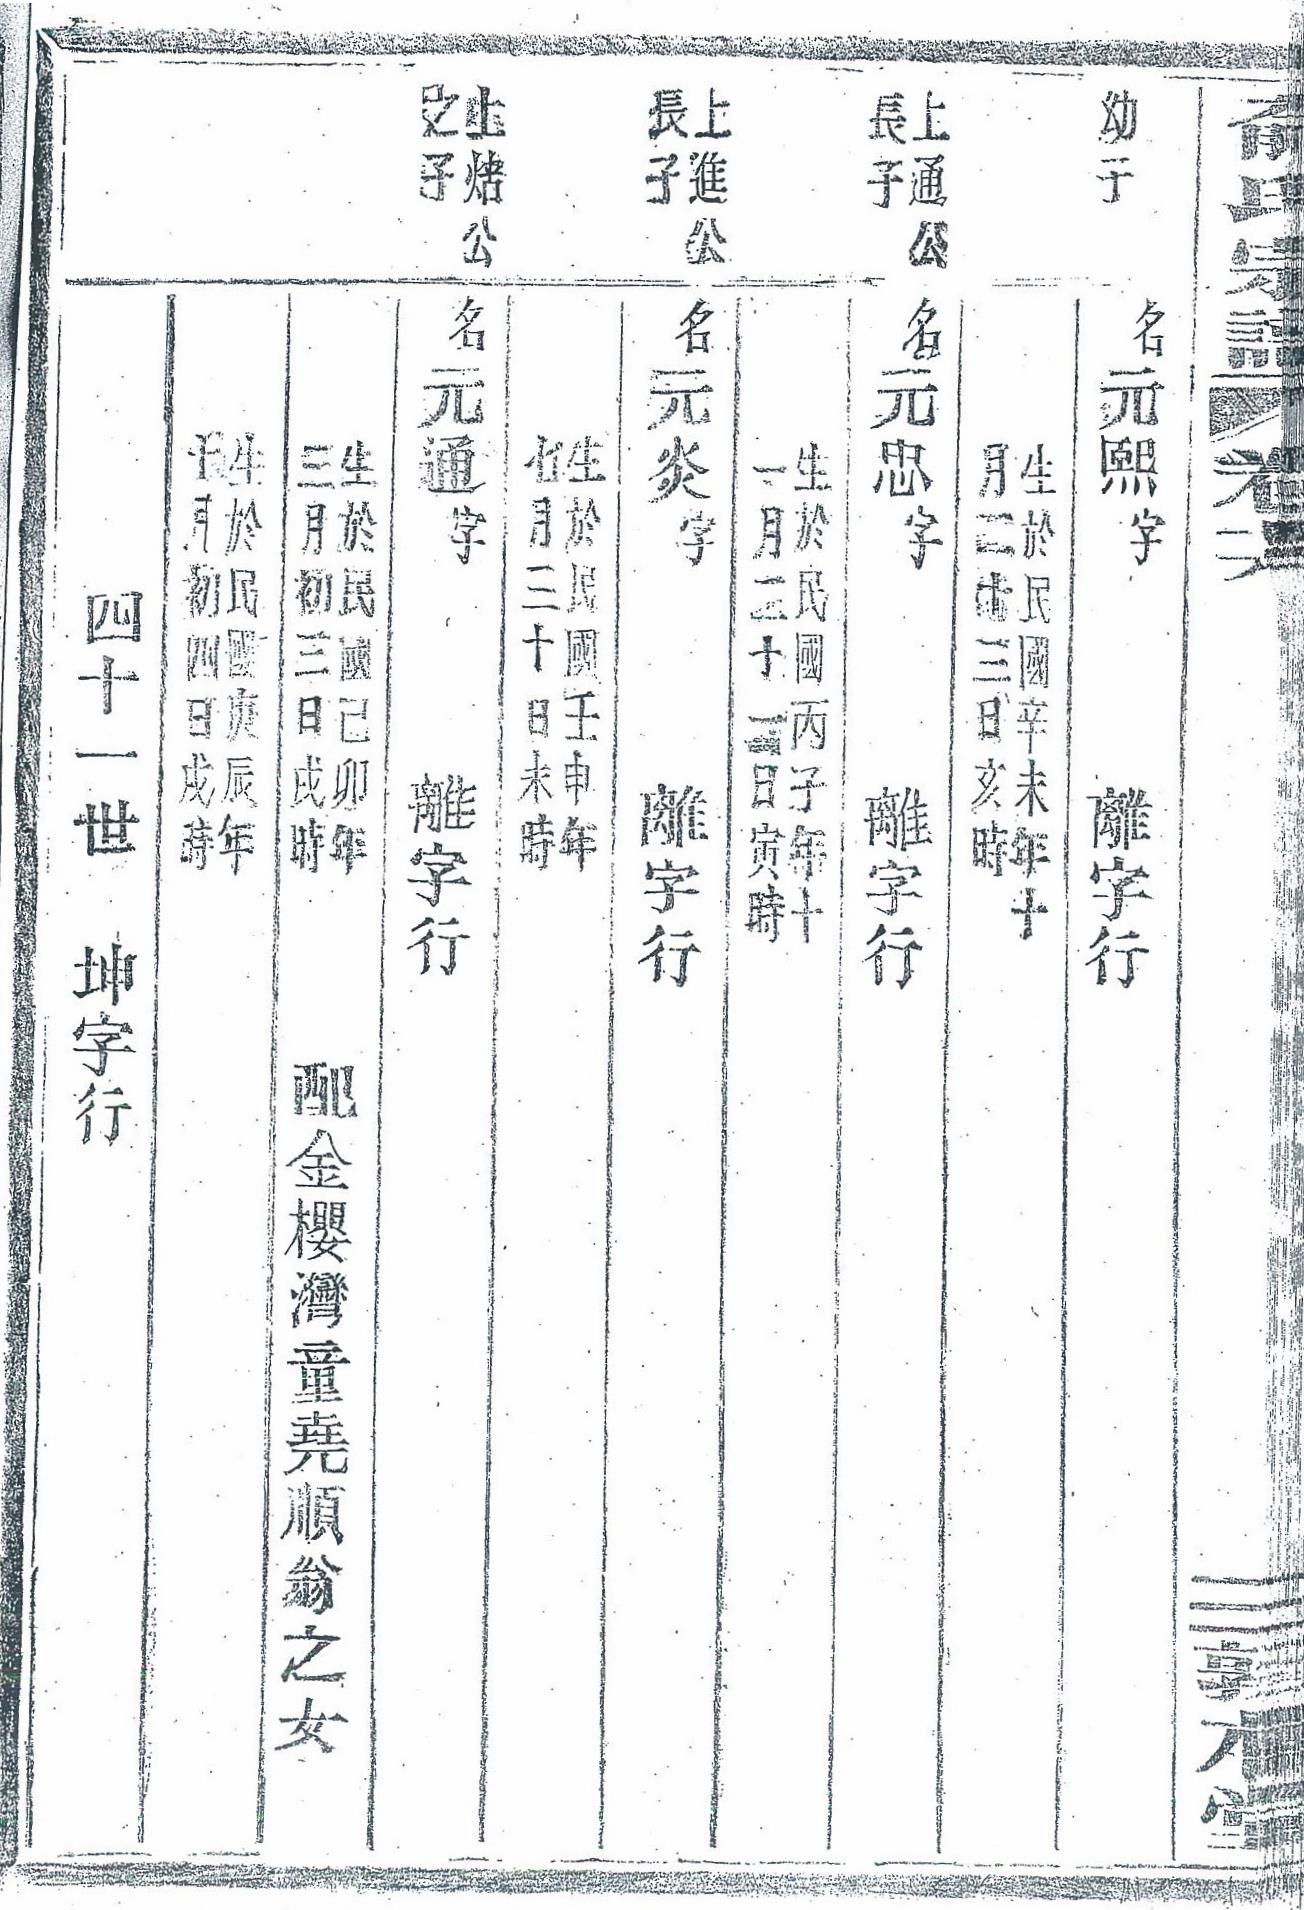 氏宗譜 卷六
幼子
名元熙字 離字行
生於民國辛未年十
月二十三日亥時
上通公
長子
名元忠字 離字行
生於民國丙子年十
一月二十二日寅時
上進公
長子
名元炎字 離字行
生於民國壬申年
七月三十日未時
上焙公
之子
名元通字 離字行
生於民國己卯年
三月初三日戌時
配金櫻灣童堯順翁之女
生於民國庚辰年
十月初四日戌時
四十一世 坤字行